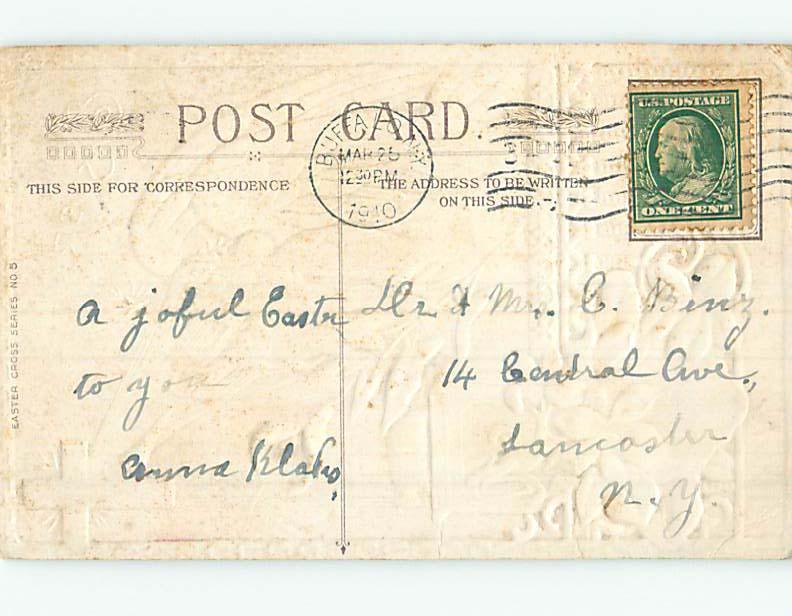 POST CARD.
U.S. POSTAGE
ONE CENT
BUFFALO, N.Y.
MAR 25
12 30 PM
1910
THIS SIDE FOR CORRESPONDENCE
THE ADDRESS TO BE WRITTEN
ON THIS SIDE.
EASTER CROSS SERIES NO. 5
A joful Easter
to you
Anna
Dr. & Mrs. C. Binz.
14 Central Ave.,
Lancaster
N.Y.